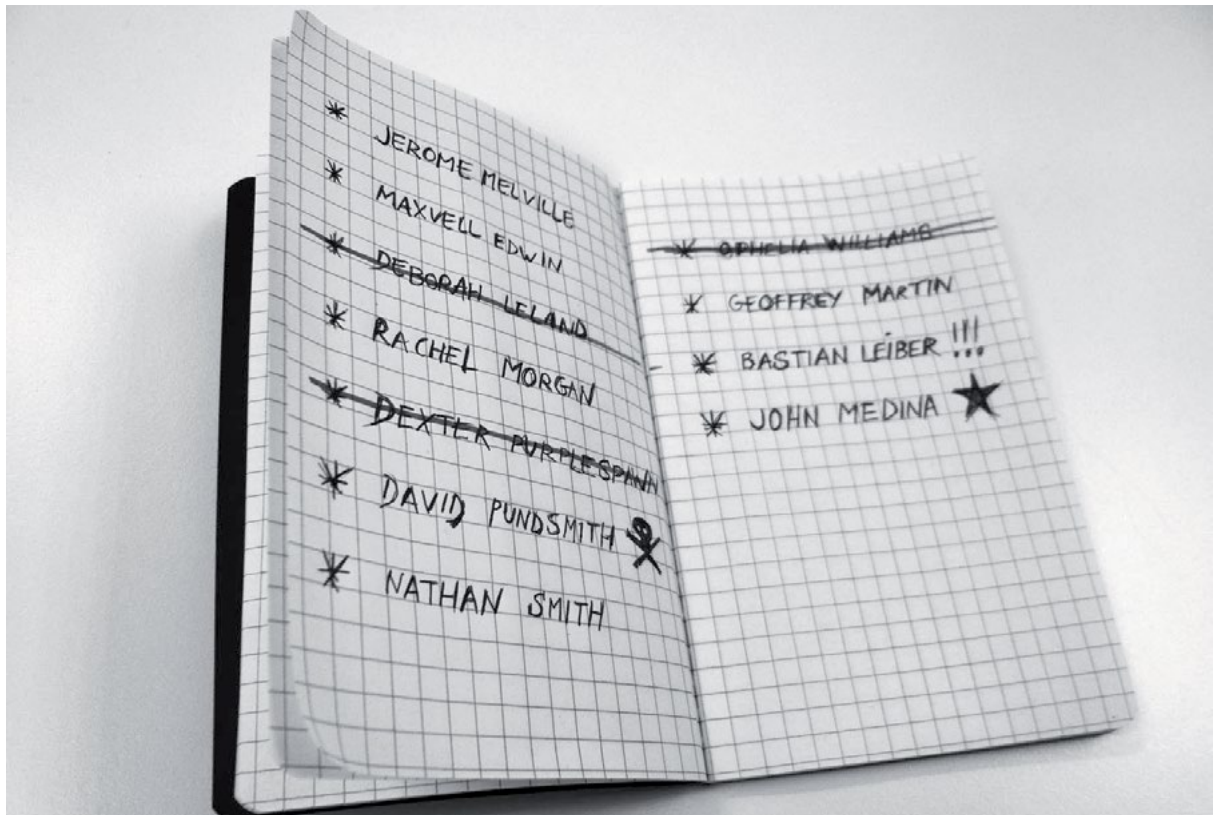 * JEROME MELVILLE
* MAXVELL EDWIN
* DEBORAH LELAND
* RACHEL MORGAN
* DEXTER PURPLESPANN
* DAVID PUNDSMITH
* NATHAN SMITH
* OPHELIA WILLIAMS
* GEOFFREY MARTIN
* BASTIAN LEIBER !!!
* JOHN MEDINA ★